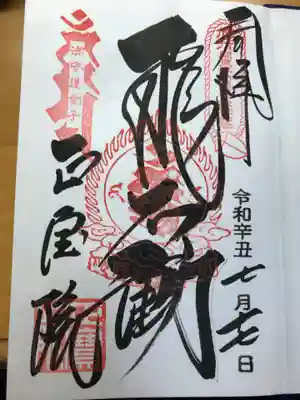 奉拝
令和辛丑 七月七日
飛不動
正宝院